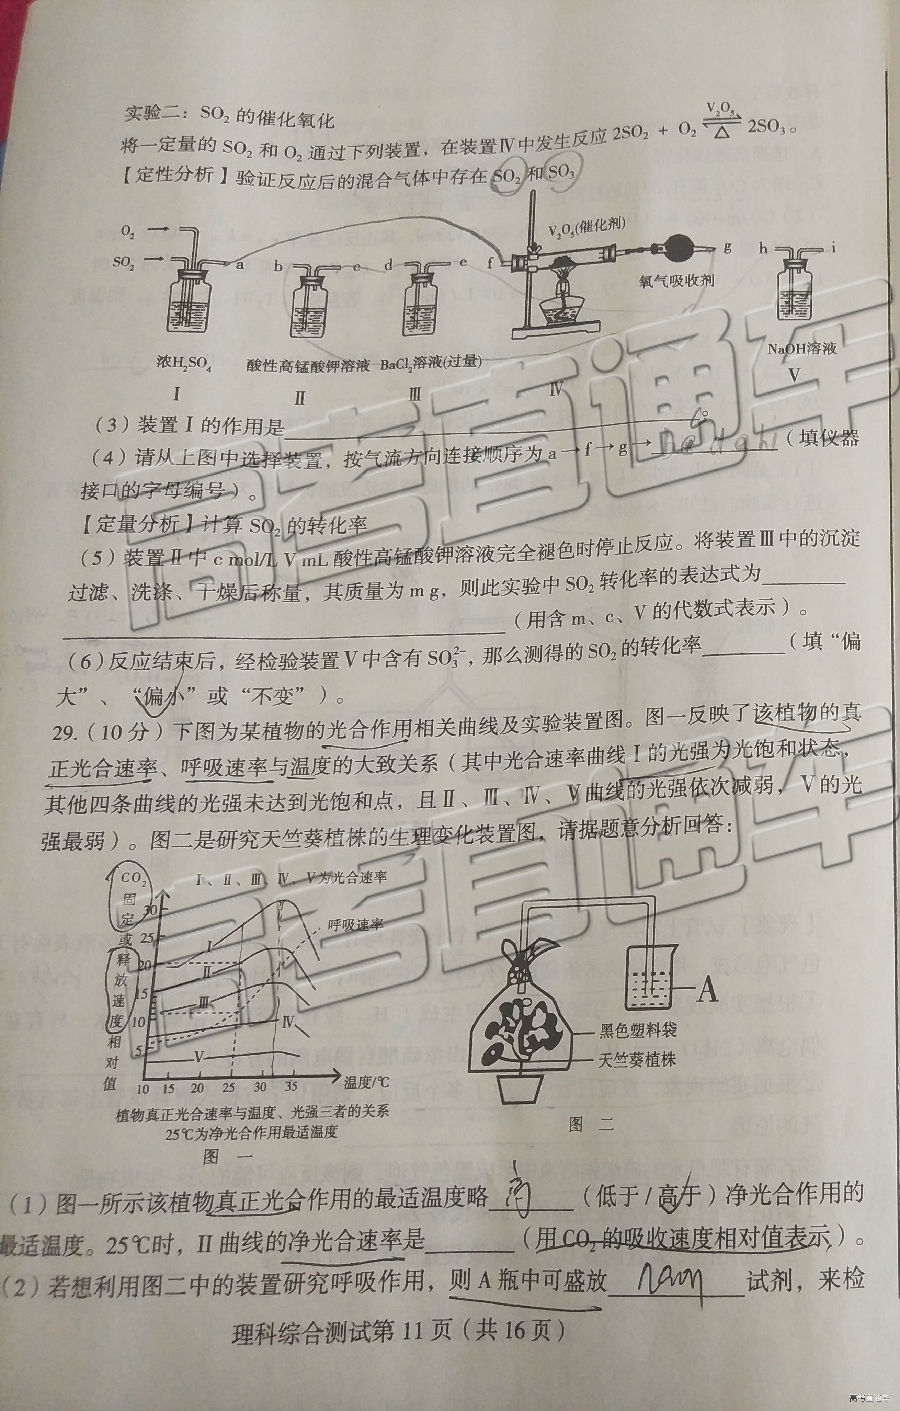 实验二：SO₂ 的催化氧化
将一定量的 SO₂ 和 O₂ 通过下列装置，在装置Ⅳ中发生反应 2SO₂ + O₂ ⇌ 2SO₃。
V₂O₅
△
【定性分析】验证反应后的混合气体中存在 SO₂ 和 SO₃
O₂
SO₂
a b c d e f g h i
V₂O₅(催化剂)
氧气吸收剂
浓H₂SO₄ 酸性高锰酸钾溶液 BaCl₂溶液(过量) NaOH溶液
Ⅰ Ⅱ Ⅲ Ⅳ Ⅴ
（3）装置Ⅰ的作用是
（4）请从上图中选择装置，按气流方向连接顺序为 a→f→g→（填仪器
接口的字母编号）。
【定量分析】计算 SO₂ 的转化率
（5）装置Ⅱ中 c mol/L V mL 酸性高锰酸钾溶液完全褪色时停止反应。将装置Ⅲ中的沉淀
过滤、洗涤、干燥后称量，其质量为 m g，则此实验中 SO₂ 转化率的表达式为
（用含 m、c、V 的代数式表示）。
（6）反应结束后，经检验装置Ⅴ中含有 SO₃²⁻，那么测得的 SO₂ 的转化率（填“偏
大”、“偏小”或“不变”）。
29.（10 分）下图为某植物的光合作用相关曲线及实验装置图。图一反映了该植物的真
正光合速率、呼吸速率与温度的大致关系（其中光合速率曲线Ⅰ的光强为光饱和状态，
其他四条曲线的光强未达到光饱和点，且Ⅱ、Ⅲ、Ⅳ、Ⅴ曲线的光强依次减弱，Ⅴ的光
强最弱）。图二是研究天竺葵植株的生理变化装置图，请据题意分析回答：
CO₂固定或释放速度相对值
Ⅰ、Ⅱ、Ⅲ、Ⅳ、Ⅴ为光合速率
呼吸速率
30
25
20
15
10
5
Ⅰ
Ⅱ
Ⅲ
Ⅳ
Ⅴ
10 15 20 25 30 35 温度/℃
植物真正光合速率与温度、光强三者的关系
25℃为净光合作用最适温度
图 一
A
黑色塑料袋
天竺葵植株
图 二
（1）图一所示该植物真正光合作用的最适温度略 高 （低于/高于）净光合作用的
最适温度。25℃时，Ⅱ曲线的净光合速率是（用 CO₂ 的吸收速度相对值表示）。
（2）若想利用图二中的装置研究呼吸作用，则 A 瓶中可盛放试剂，来检
理科综合测试第 11 页（共 16 页）
高考直通车
高考直通车
高考直通车